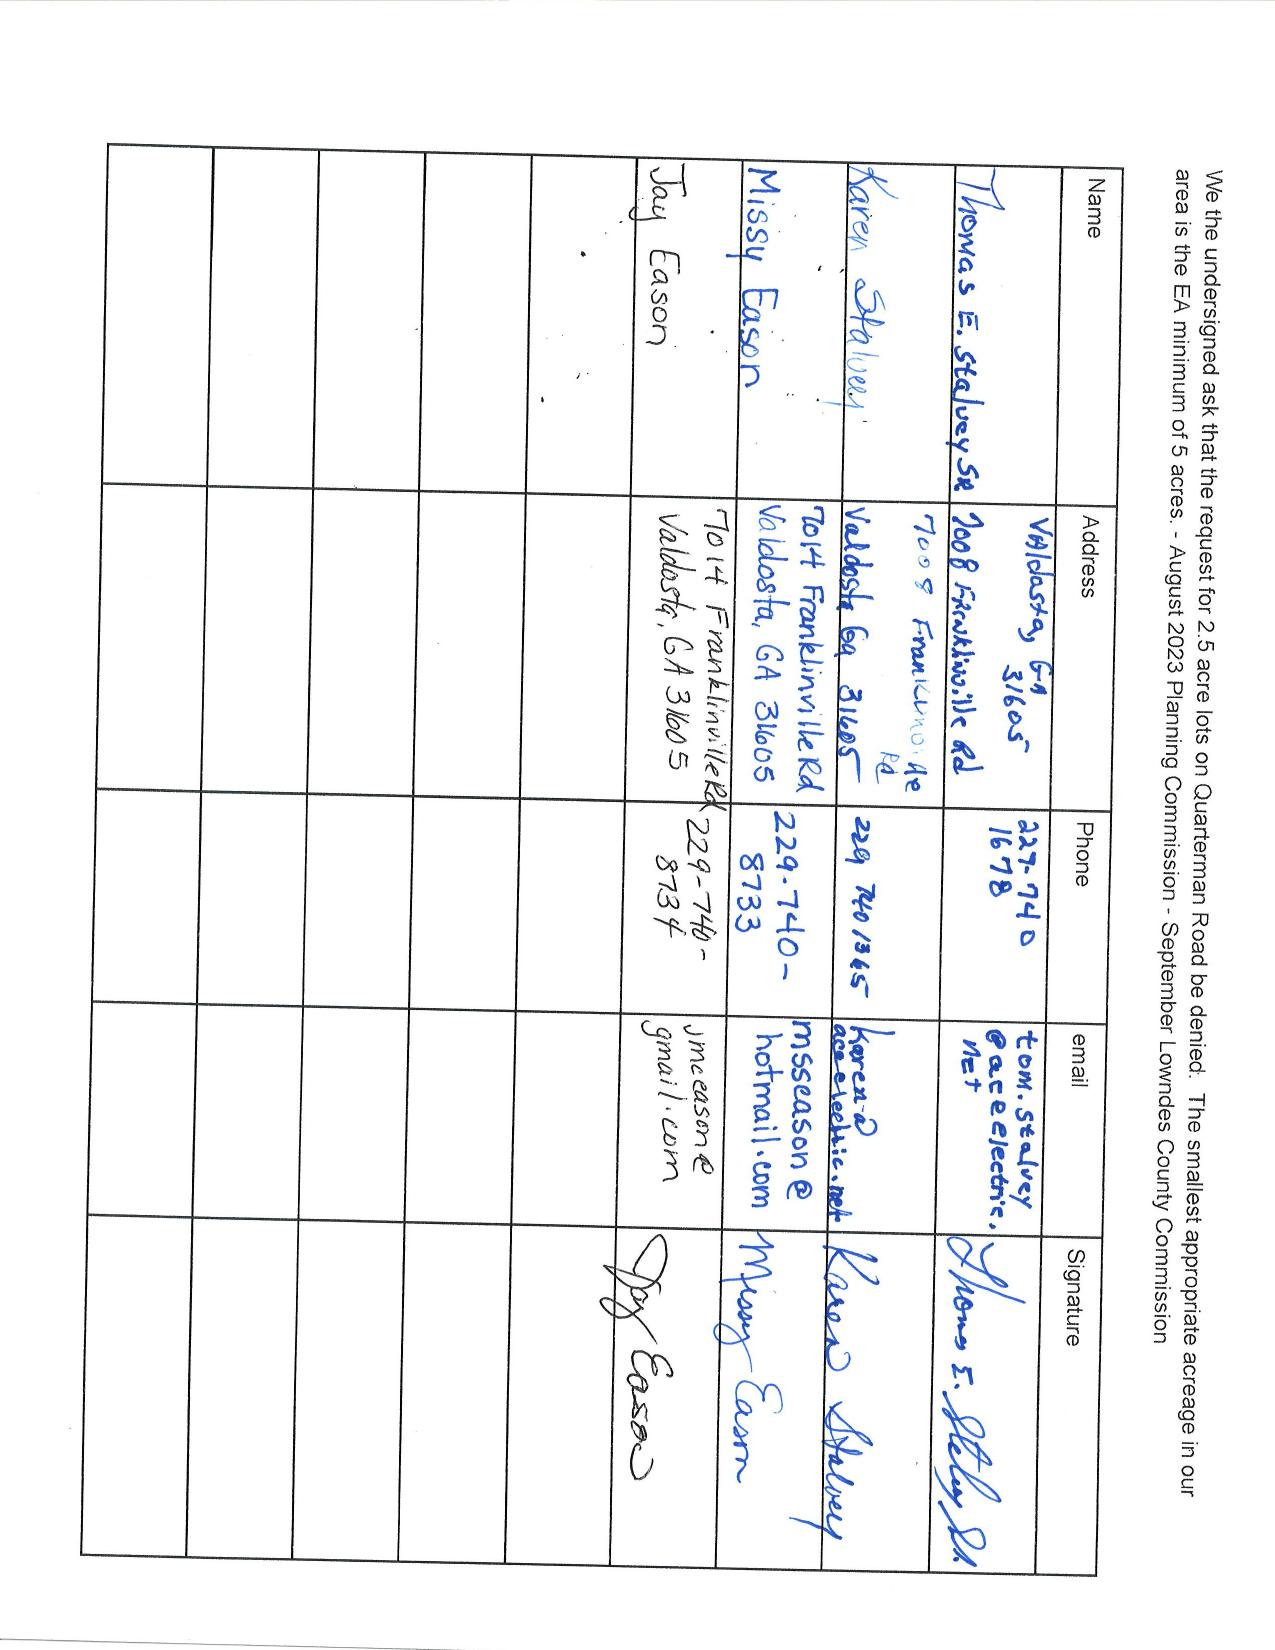 We the undersigned ask that the request for 2.5 acre lots on Quarterman Road be denied. The smallest appropriate acreage in our
area is the EA minimum of 5 acres. - August 2023 Planning Commission - September Lowndes County Commission
Name Address Phone email Signature
Thomas E. Stalvey SR
Valdasta, GA
31605
7008 Franklinville Rd
229-740
1678
tom.stalvey
@aceelectric.
net
Thomas E. Stalvey Sr
Karen Stalvey
7008 Franklinville
Rd
Valdosta Ga 31605
229 740 1365
Karen@
aceelectric.net
Karen Stalvey
Missy Eason
7014 Franklinville Rd
Valdosta, GA 31605
229-740-
8733
msseason@
hotmail.com
Missy Eason
Jay Eason
7014 Franklinville Rd
Valdosta, GA 31605
229-740-
8734
jmceason@
gmail.com
Jay Eason